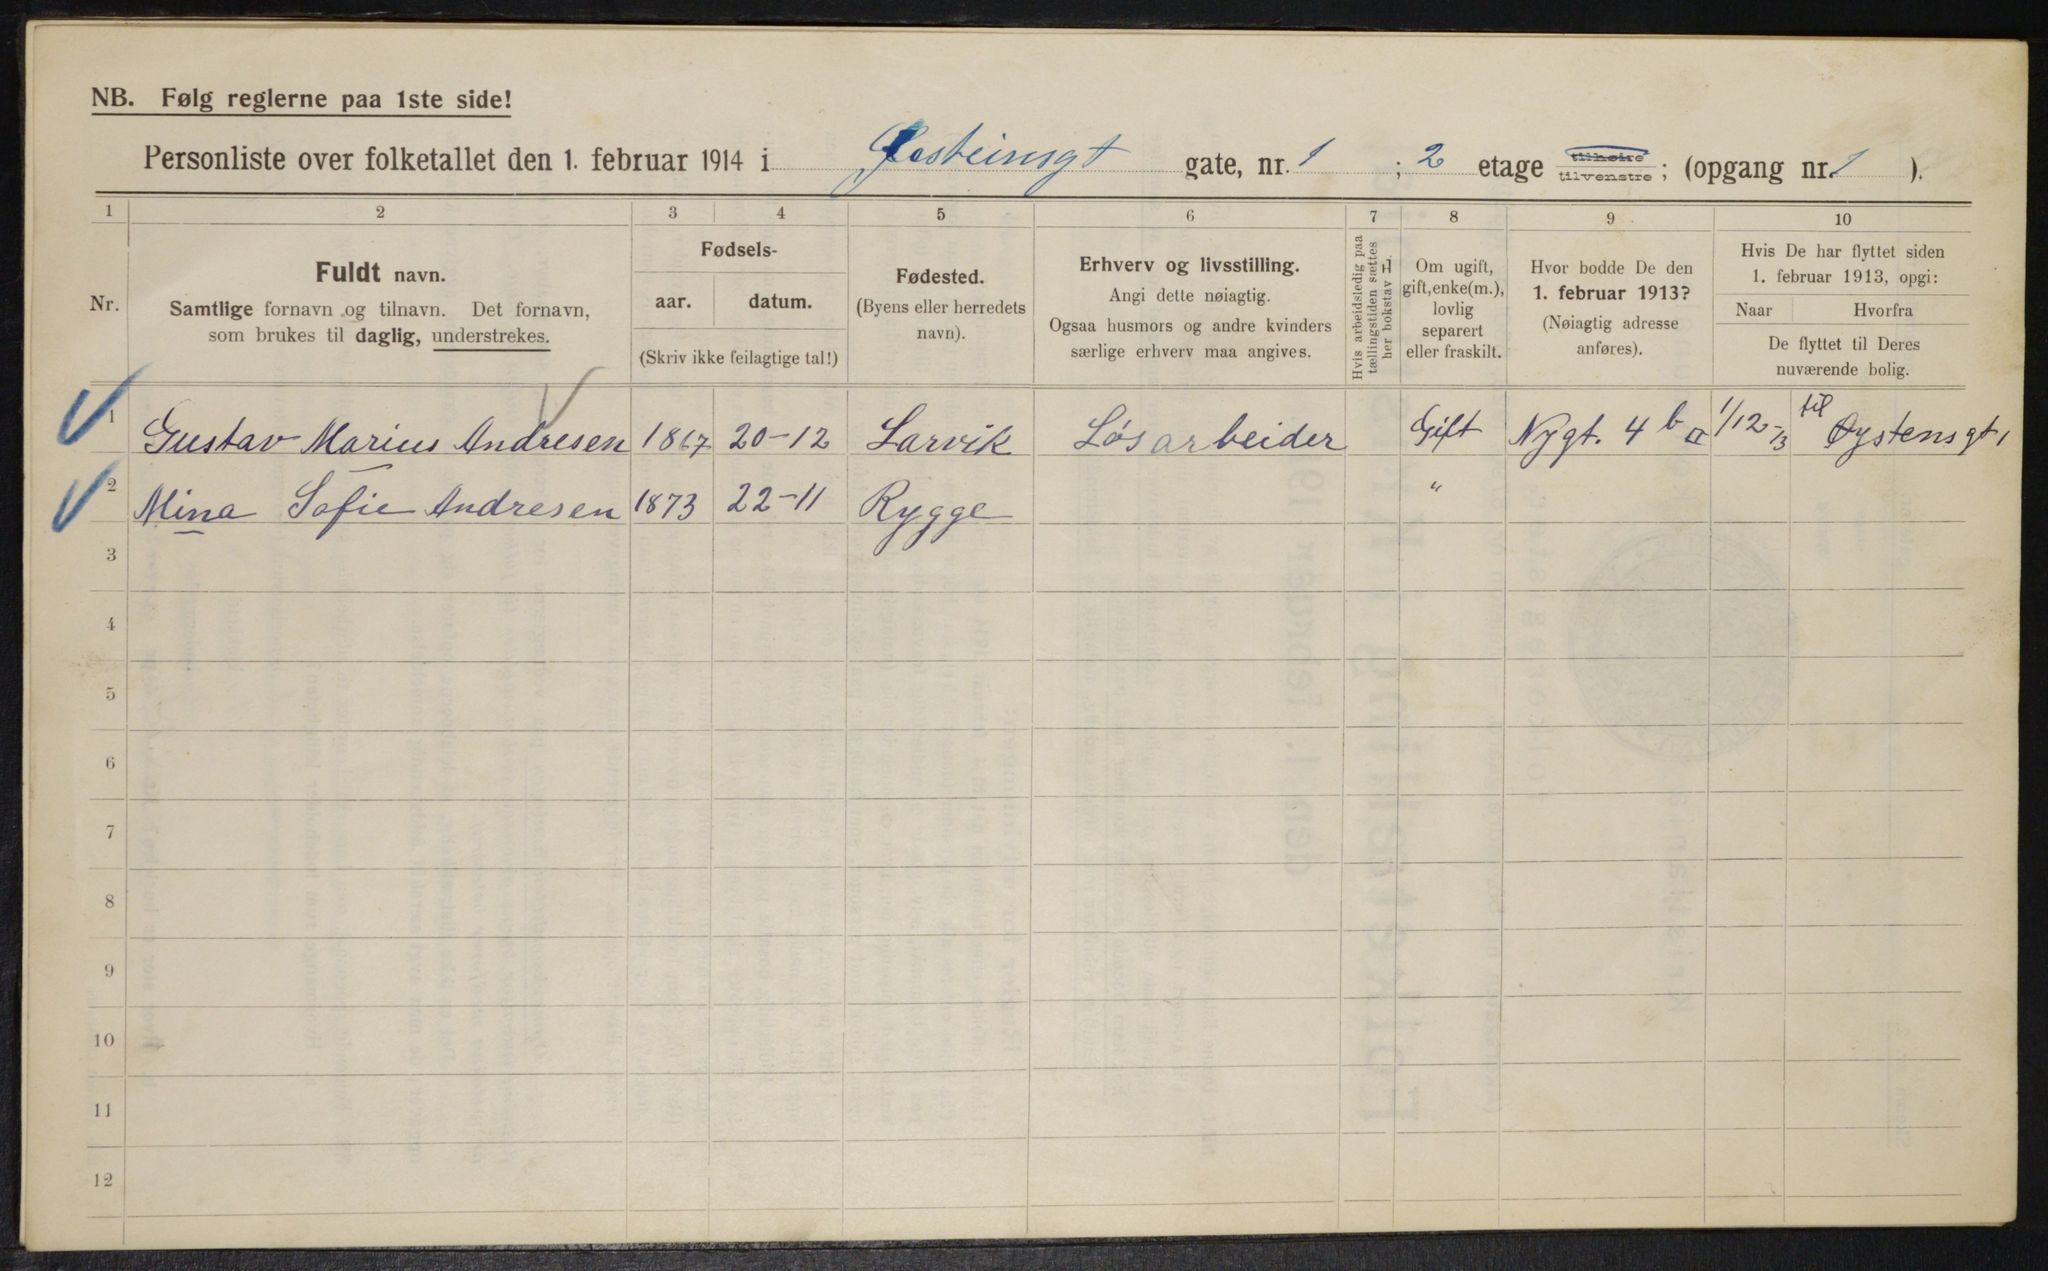 NB. Følg reglerne paa 1ste side!
Personliste over folketallet den 1. februar 1914 i Østeinsgt gate, nr. 1 ; 2 etage tilhøire tilvenstre ; (opgang nr. 1 ).
1 2 3 4 5 6 7 8 9 10
Nr.
Fuldt navn.
Samtlige fornavn og tilnavn. Det fornavn,
som brukes til daglig, understrekes.
Fødsels-
aar. datum.
(Skriv ikke feilagtige tal!)
Fødested.
(Byens eller herredets
navn).
Erhverv og livsstilling.
Angi dette nøiagtig.
Ogsaa husmors og andre kvinders
særlige erhverv maa angives.
Hvis arbeidsledig paa
tællingstiden sættes
her bokstav L
Om ugift,
gift, enke(m.),
lovlig
separert
eller fraskilt.
Hvor bodde De den
1. februar 1913?
(Nøiagtig adresse
anføres).
Hvis De har flyttet siden
1. februar 1913, opgi:
Naar Hvorfra
De flyttet til Deres
nuværende bolig.
1 Gustav Marius Andresen 1867 20-12 Larvik Løsarbeider Gift Nygt. 4 b II 1/12-13 til Øystensgt 1
2 Mina Sofie Andresen 1873 22-11 Rygge "
3
4
5
6
7
8
9
10
11
12